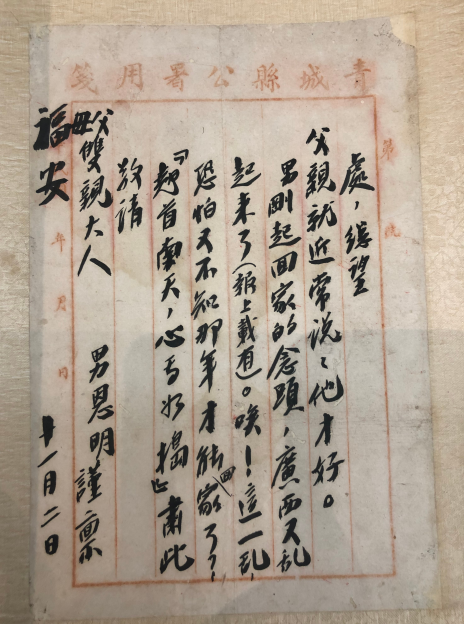 青城縣公署用箋
第 號
處，總望
父親就近常說〻他才好。
男剛起回家的念頭，廣西又亂
起來了（報上載有）。唉！這一亂，
恐怕又不知那年才能回家了！
「翹首南天，心焉如搗」肅此
敬請
父母雙親大人
福安
男恩明謹稟
年 月 日
十一月二日